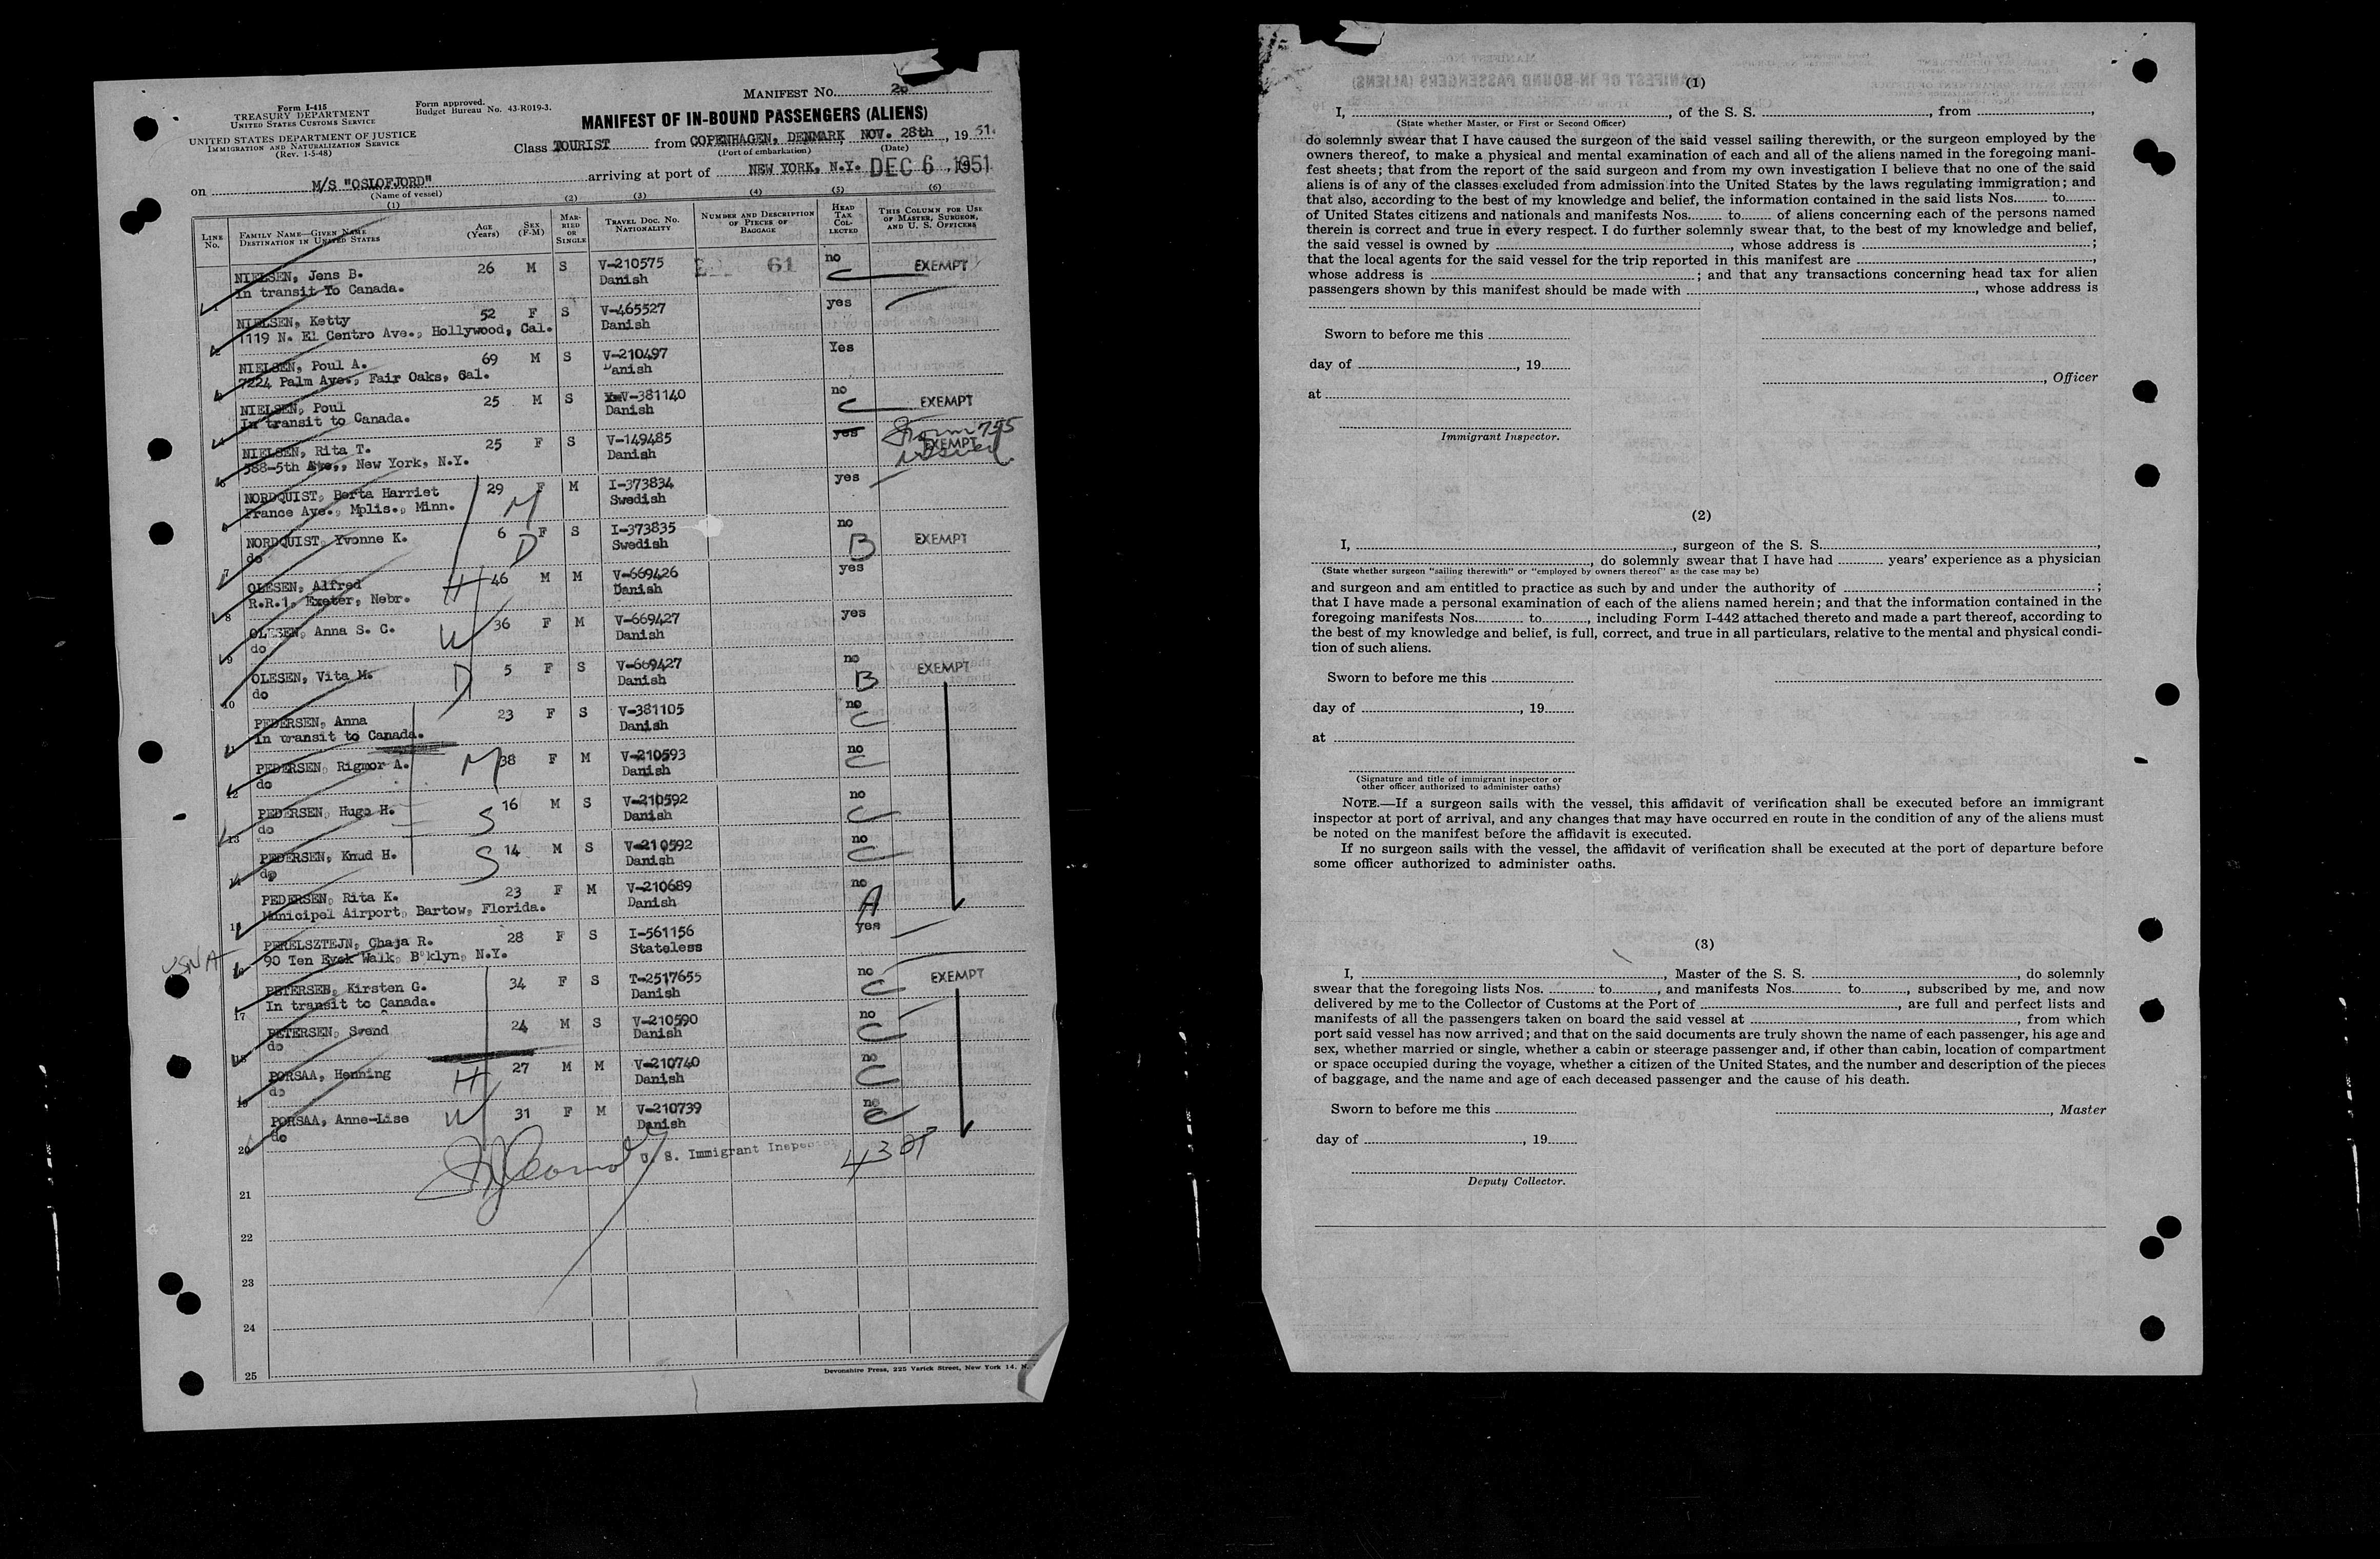 MANIFEST NO. 20
Form I-415
TREASURY DEPARTMENT
UNITED STATES CUSTOMS SERVICE
UNITED STATES DEPARTMENT OF JUSTICE
IMMIGRATION AND NATURALIZATION SERVICE
(Rev. 1-5-48)
Form approved.
Budget Bureau No. 43-R019-3.
MANIFEST OF IN-BOUND PASSENGERS (ALIENS)
Class TOURIST from COPENHAGEN, DENMARK, NOV. 28th, 1951.
(Port of embarkation) (Date)
on M/S "OSLOFJORD" arriving at port of NEW YORK, N.Y. DEC 6 1951
(Name of vessel)
(1) (2) (3) (4) (5) (6)
LINE No. FAMILY NAME—GIVEN NAME DESTINATION IN UNITED STATES AGE (Years) SEX (F-M) MARRIED OR SINGLE TRAVEL DOC. NO. NATIONALITY NUMBER AND DESCRIPTION OF PIECES OF BAGGAGE HEAD TAX COLLECTED THIS COLUMN FOR USE OF MASTER, SURGEON, AND U. S. OFFICERS
NIELSEN, Jens B. 26 M S V-210575 61 no EXEMPT
1 In transit To Canada. Danish C
NIELSEN, Ketty 52 F S V-465527 yes
2 1119 N. El Centro Ave., Hollywood, Cal. Danish
NIELSEN, Poul A. 69 M S V-210497 Yes
3 7224 Palm Ave., Fair Oaks, Cal. Danish
NIELSEN, Poul 25 M S V-381140 no EXEMPT
4 In transit to Canada. Danish C
NIELSEN, Rita T. 25 F S V-149485 yes Form 755 issued EXEMPT
5 588-5th Ave., New York, N.Y. Danish
NORDQUIST, Berta Harriet 29 F M I-373834 yes
6 France Ave., Mplis., Minn. M Swedish
NORDQUIST, Yvonne K. 6 F S I-373835 no EXEMPT
7 do D Swedish B
OLESEN, Alfred H 46 M M V-669426 yes
8 R.R.1, Exeter, Nebr. Danish
OLESEN, Anna S. C. W 36 F M V-669427 yes
9 do Danish
OLESEN, Vita M. D 5 F S V-669427 no EXEMPT
10 do Danish B
PEDERSEN, Anna 23 F S V-381105 no
11 In transit to Canada. Danish C
PEDERSEN, Rigmor A. M 38 F M V-210593 no
12 do Danish C
PEDERSEN, Hugo H. S 16 M S V-210592 no
13 do Danish C
PEDERSEN, Knud H. S 14 M S V-210592 no
14 do Danish C
PEDERSEN, Rita K. 23 F M V-210689 no
15 Municipel Airport, Bartow, Florida. Danish A
PERELSZTEJN, Chaja R. 28 F S I-561156 yes
USNA 16 90 Ten Eyck Walk, B'klyn, N.Y. Stateless
PETERSEN, Kirsten G. 34 F S T-2517655 no EXEMPT
17 In transit to Canada. Danish C
PETERSEN, Svend 24 M S V-210590 no
18 do Danish C
PORSAA, Henning H 27 M M V-210740 no
19 do Danish C
PORSAA, Anne-Lise W 31 F M V-210739 no
20 do Danish C
U. S. Immigrant Inspector
21
22
23
24
25
Devonshire Press, 225 Varick Street, New York 14, N.
(1)
I, , of the S. S. , from ,
(State whether Master, or First or Second Officer)
do solemnly swear that I have caused the surgeon of the said vessel sailing therewith, or the surgeon employed by the
owners thereof, to make a physical and mental examination of each and all of the aliens named in the foregoing mani-
fest sheets; that from the report of the said surgeon and from my own investigation I believe that no one of the said
aliens is of any of the classes excluded from admission into the United States by the laws regulating immigration; and
that also, according to the best of my knowledge and belief, the information contained in the said lists Nos. to
of United States citizens and nationals and manifests Nos. to of aliens concerning each of the persons named
therein is correct and true in every respect. I do further solemnly swear that, to the best of my knowledge and belief,
the said vessel is owned by , whose address is ;
that the local agents for the said vessel for the trip reported in this manifest are ,
whose address is ; and that any transactions concerning head tax for alien
passengers shown by this manifest should be made with , whose address is
Sworn to before me this
day of , 19
, Officer
at
Immigrant Inspector.
(2)
I, , surgeon of the S. S. ,
, do solemnly swear that I have had years' experience as a physician
(State whether surgeon "sailing therewith" or "employed by owners thereof" as the case may be)
and surgeon and am entitled to practice as such by and under the authority of ;
that I have made a personal examination of each of the aliens named herein; and that the information contained in the
foregoing manifests Nos. to , including Form I-442 attached thereto and made a part thereof, according to
the best of my knowledge and belief, is full, correct, and true in all particulars, relative to the mental and physical condi-
tion of such aliens.
Sworn to before me this
day of , 19
at
(Signature and title of immigrant inspector or
other officer authorized to administer oaths)
NOTE.—If a surgeon sails with the vessel, this affidavit of verification shall be executed before an immigrant
inspector at port of arrival, and any changes that may have occurred en route in the condition of any of the aliens must
be noted on the manifest before the affidavit is executed.
If no surgeon sails with the vessel, the affidavit of verification shall be executed at the port of departure before
some officer authorized to administer oaths.
(3)
I, , Master of the S. S. , do solemnly
swear that the foregoing lists Nos. to , and manifests Nos. to , subscribed by me, and now
delivered by me to the Collector of Customs at the Port of , are full and perfect lists and
manifests of all the passengers taken on board the said vessel at , from which
port said vessel has now arrived; and that on the said documents are truly shown the name of each passenger, his age and
sex, whether married or single, whether a cabin or steerage passenger and, if other than cabin, location of compartment
or space occupied during the voyage, whether a citizen of the United States, and the number and description of the pieces
of baggage, and the name and age of each deceased passenger and the cause of his death.
Sworn to before me this
, Master
day of , 19
Deputy Collector.